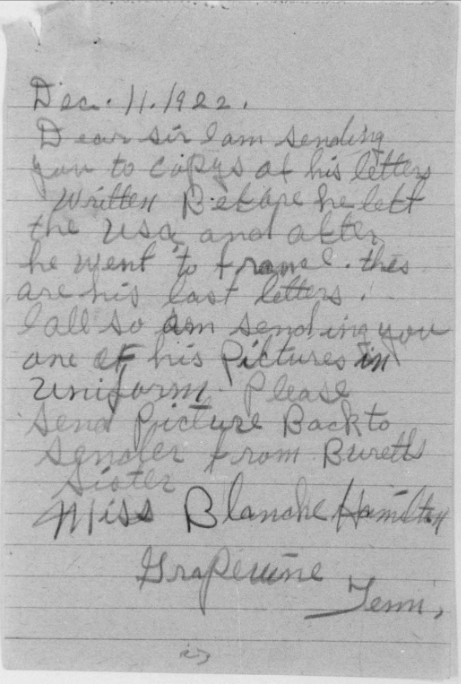 Dec. 11. 1922.
Dear sir I am sending
you to copys of his letters
Written Before he left
the usa and after
he went to france. thes
are his last letters.
I all so am sending you
one of his Pictures in
uniform. Please
send Picture Back to
sender from Buretts
sister
Miss Blanche Hamilton
Grapevine
Tenn,